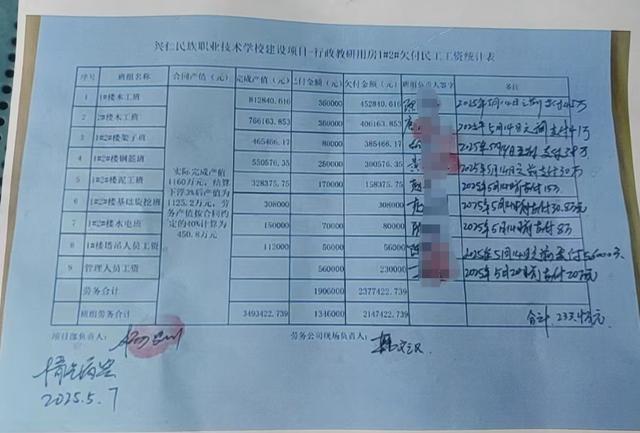 兴仁民族职业技术学校建设项目-行政教研用房1#2#欠付民工工资统计表
序号 班组名称 合同产值（元） 完成产值（元） 已付金额（元） 欠付金额（元） 班组负责人签字 备注
1 1#楼木工班 812840.616 360000 452840.616 2025年5月14日之前支付45万
2 2#楼木工班 766163.853 360000 406163.853 2025年5月14日之前支付41万
3 1#2#楼架子班 465466.17 80000 385466.17 2025年5月14日之前支付38万
4 1#2#楼钢筋班 550576.35 250000 300576.35 2025年5月14日之前支付30万
5 1#2#楼泥工班 328375.75 170000 158375.75 2025年5月14日前支付15万
6 1#2#楼基础旋挖班 308000 308000 2025年5月14日前支付30.8万元
7 1#2#楼水电班 150000 70000 80000 2025年5月14日前支付8万
8 1#楼塔吊人员工资 112000 56000 56000 2025年5月14日之前支付56000元
9 管理人员工资 560000 230000 2025年5月20日前支付20万元
实际完成产值
1160万元，结算
下浮3%后产值为
1125.2万元，劳
务产值按合同约
定的40%计算为
450.8万元
劳务合计 1906000 2377422.739
班组劳务合计 3493422.739 1346000 2147422.739 合计：233.4万元
项目部负责人： 劳务公司现场负责人：
情况属实
2025.5.7